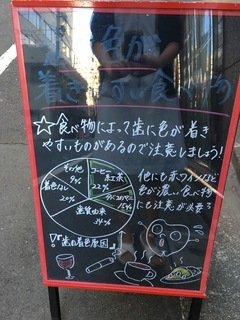 色が
着きやすい食べ物
☆食べ物によって歯に色が着き
やすいものがあるので注意しましょう!
その他
9%
コーヒー
紅茶
22%
着色なし
20%
タバコのヤニ
15%
歯質由来
34%
『歯の着色原因』
他にも赤ワインなど
色が濃い食べ物
にも注意が必要?